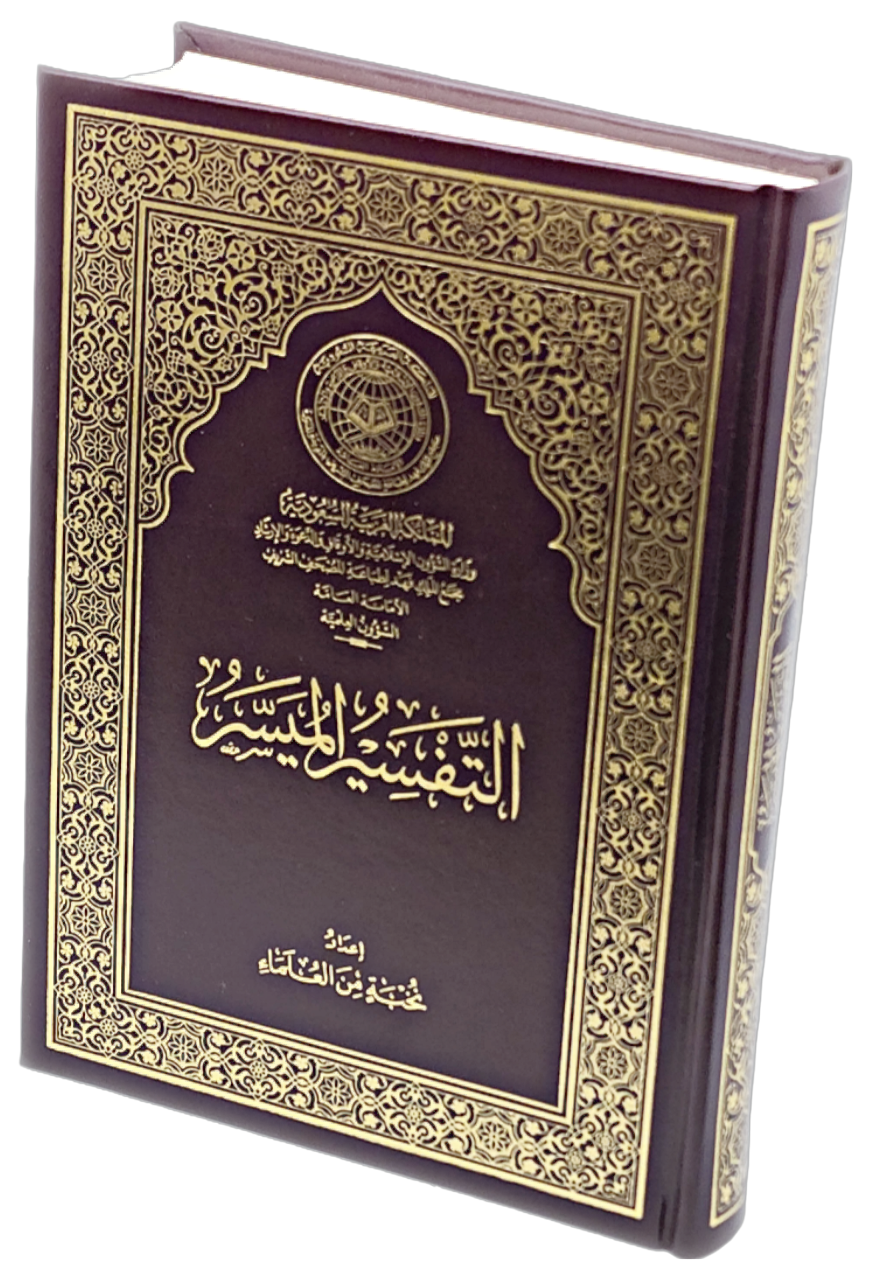 المملكة العربية السعودية
وزارة الشؤون الإسلامية والأوقاف والدعوة والإرشاد
مجمع الملك فهد لطباعة المصحف الشريف
الأمانة العامة
الشؤون العلمية
التَّفْسِيرُ المُيَسَّرُ
إعدَادُ
نُخْبَةٍ مِنَ العُلَمَاءِ